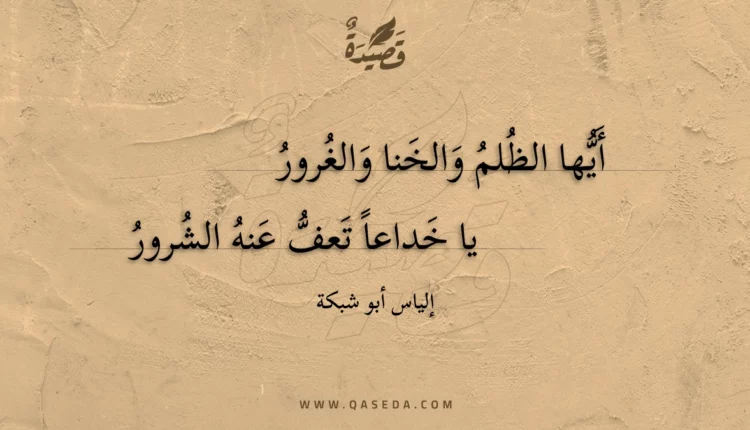 قَصِيْدَةٌ
أَيُّها الظُلمُ وَالخَنا وَالغُرورُ
يا خَداعاً تَعفُّ عَنهُ الشُرورُ
إلياس أبو شبكة
WWW.QASEDA.COM